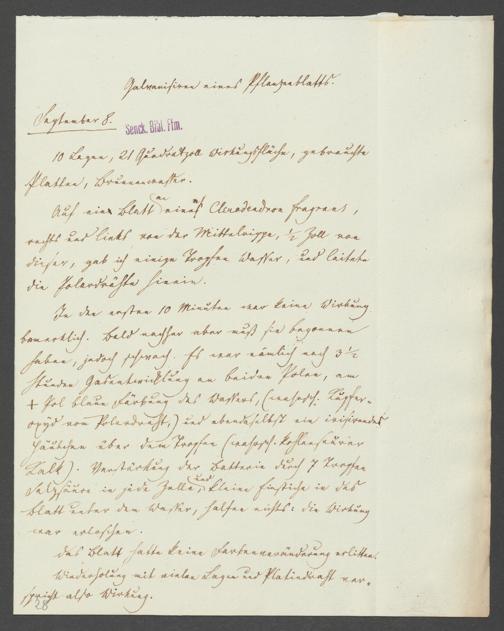 Galvanisiren eines Pflanzenblatts.
September 8.
Senck. Bibl. Ffm.
10 Lagen, 21 Quadratzoll Wirkungsfläche, gebrauchte
Platten, Brunnenwasser.
Auf ein Blatt an eines Clerodendron fragrans,
rechts und links von der Mittelrippe, 1/2 Zoll von
dieser, gab ich einige Tropfen Wasser, und leitete
die Polardrähte hinein.
In den ersten 10 Minuten war keine Wirkung
bemerklich. Bald nachher aber muß sie begonnen
haben, jedoch schwach. Es war nämlich nach 3 1/2
Stunden Gasentwicklung an beiden Polen, am
+ Pol blaue Färbung des Wassers, (wahrsch: Kupfer-
oxyd vom Polardraht,) und ebendaselbst ein irisirendes
Häutchen über dem Tropfen (wahrsch: kohlensaurer
Kalk). Verstärkung der Batterie durch 7 Tropfen
Salzsäure in jede Zelle, und kleine Einstiche in das
Blatt unter dem Wasser, halfen nichts: die Wirkung
war erloschen.
Das Blatt hatte keine Farbenveränderung erlitten.
Wiederholung mit vielen Lagen und Platindraht ver-
spricht also Wirkung.
28